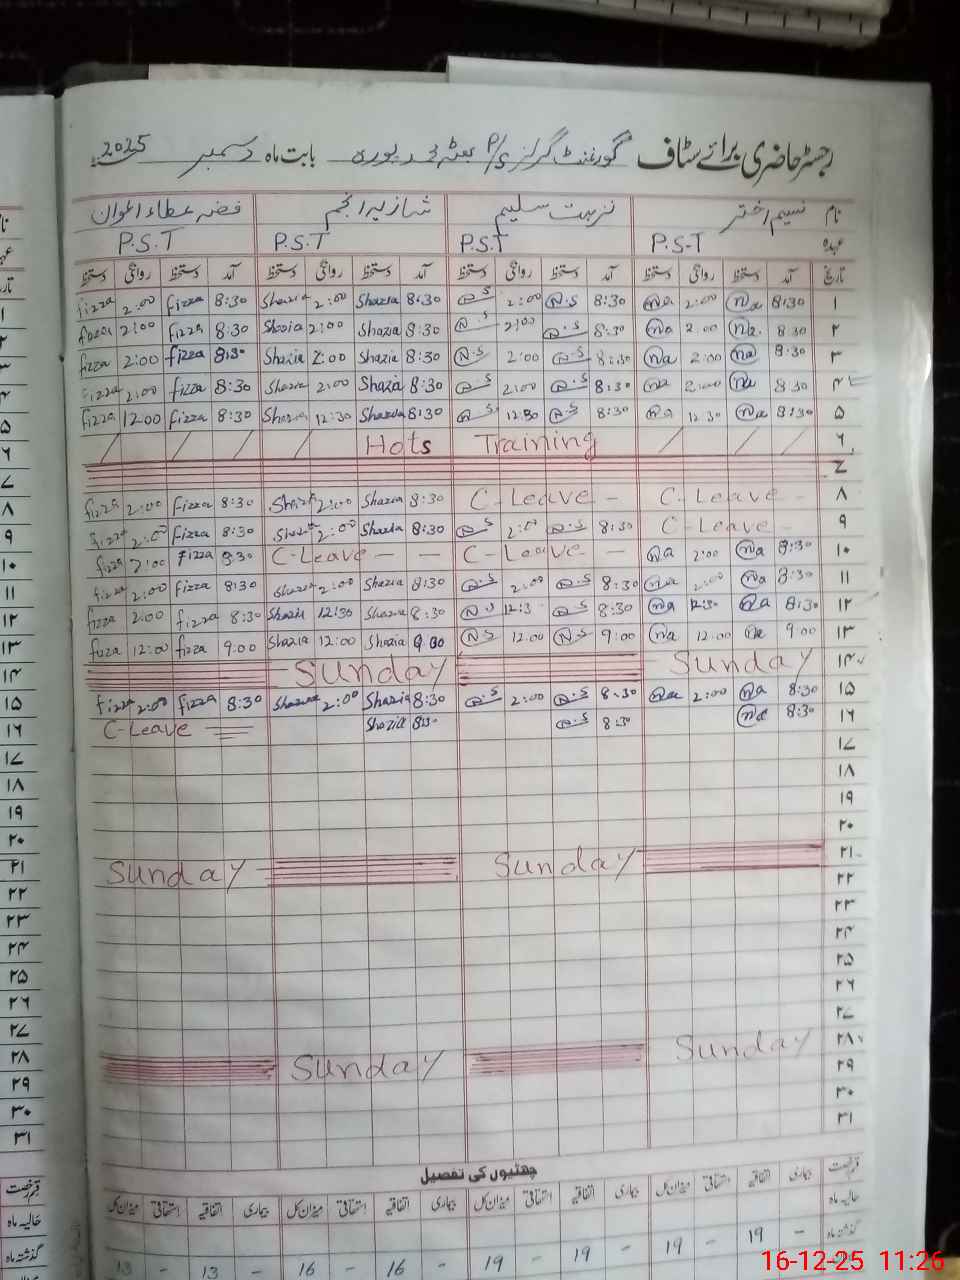 رجسٹر حاضری برائے سٹاف گورنمنٹ گرلز P/S بابت ماہ دسمبر 2025
نام نسیم اختر نزہت سلیم شازیہ انجم فضہ عطاء اعوان
عہدہ P.S.T P.S.T P.S.T P.S.T
تاریخ آمد دستخط روانگی دستخط آمد دستخط روانگی دستخط آمد دستخط روانگی دستخط آمد دستخط روانگی دستخط
۱ 8:30 Na 2:00 Na 8:30 N.S 2:00 N.S 8:30 Shazia 2:00 Shazia 8:30 fizza 2:00 fizza
۲ 8:30 Na 2:00 Na 8:30 N.S 2:00 N.S 8:30 Shazia 2:00 Shazia 8:30 fizza 2:00 fizza
۳ 8:30 Na 2:00 Na 8:30 N.S 2:00 N.S 8:30 Shazia 2:00 Shazia 8:30 fizza 2:00 fizza
۴ 8:30 Na 2:00 Na 8:30 N.S 2:00 N.S 8:30 Shazia 2:00 Shazia 8:30 fizza 2:00 fizza
۵ 8:30 Na 12:30 Na 8:30 N.S 12:30 N.S 8:30 Shazia 12:30 Shazia 8:30 fizza 12:00 fizza
۶ Hots Training
۷
۸ C-Leave C-Leave - 8:30 Shazia 2:00 Shazia 8:30 fizza 2:00 fizza
۹ C-Leave - 8:30 N.S 2:00 N.S 8:30 Shazia 2:00 Shazia 8:30 fizza 2:00 fizza
۱۰ 8:30 Na 2:00 Na C-Leave - C-Leave - - 8:30 fizza 2:00 fizza
۱۱ 8:30 Na 2:00 Na 8:30 N.S 2:00 N.S 8:30 Shazia 2:00 Shazia 8:30 fizza 2:00 fizza
۱۲ 8:30 Na 12:30 Na 8:30 N.S 12:3 N.S 8:30 Shazia 12:30 Shazia 8:30 fizza 2:00 fizza
۱۳ 9:00 Na 12:00 Na 9:00 N.S 12:00 N.S 9:00 Shazia 12:00 Shazia 9:00 fizza 12:00 fizza
۱۴ Sunday Sunday
۱۵ 8:30 Na 2:00 Na 8:30 N.S 2:00 N.S 8:30 Shazia 2:00 Shazia 8:30 fizza 2:00 fizza
۱۶ 8:30 Na 8:30 N.S 8:30 Shazia C-Leave
۱۷
۱۸
۱۹
۲۰
۲۱ Sunday Sunday
۲۲
۲۳
۲۴
۲۵
۲۶
۲۷
۲۸ Sunday Sunday
۲۹
۳۰
۳۱
چھٹیوں کی تفصیل
قسم رخصت بیماری اتفاقیہ استحقاقی میزان کل بیماری اتفاقیہ استحقاقی میزان کل بیماری اتفاقیہ استحقاقی میزان کل بیماری اتفاقیہ استحقاقی میزان کل
حالیہ ماہ
گذشتہ ماہ - 19 - 19 - 19 - 19 - 16 - 16 - 13 - 13
16-12-25 11:26